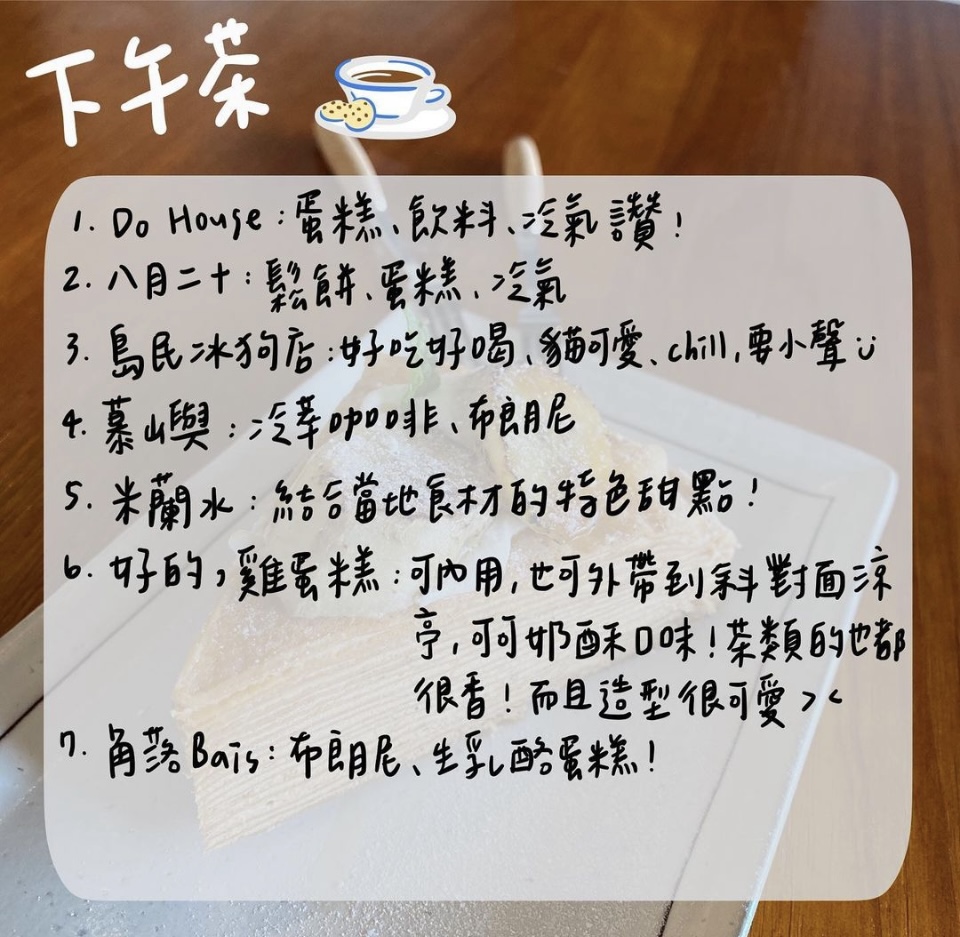 下午茶
1. Do House:蛋糕、飲料、冷氣讚!
2. 八月二十:鬆餅、蛋糕、冷氣
3. 島民冰狗店:好吃好喝、貓可愛、chill,要小聲ü
4. 慕山嶼:冷萃咖啡、布朗尼
5. 米蘭水:結合當地食材的特色甜點!
6. 好的,雞蛋糕:可內用,也可外帶到斜對面涼
亭,可可奶酥口味!茶類的也都
很香!而且造型很可愛><
7. 角落Bais:布朗尼、生乳酪蛋糕!